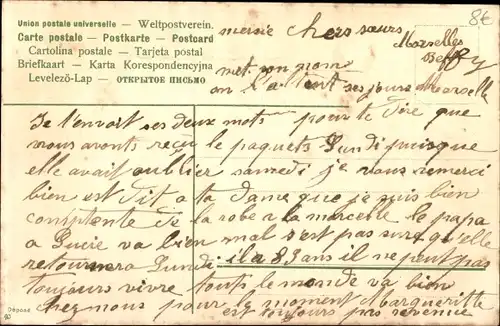 Union postale universelle – Weltpostverein.
Carte postale – Postkarte – Postcard
Cartolina postale – Tarjeta postal
Briefkaart – Karta Korespondencyjna
Levelező-Lap – ОТКРЫТОЕ ПИСЬМО
8€
mersie chers sœurs
met son nom
on l'attent ses jours Marselle
Je t'envoit ses deux mots pour te dire que
nous avonts reçu le paquets Lundi puisque
elle avait oublier samedi je vous remerci
bien est dit a ta Dame que je suis bien
consptente de la robe a la marcelle le papa
a Lucie va bien mal s'est pas sure qu'elle
retournera Lundi il a 83 ans il ne peut pas
toujours vivre touts le monde va bien
chez nous pour le moment Margueritte
est toujours pas revenue
Déposé